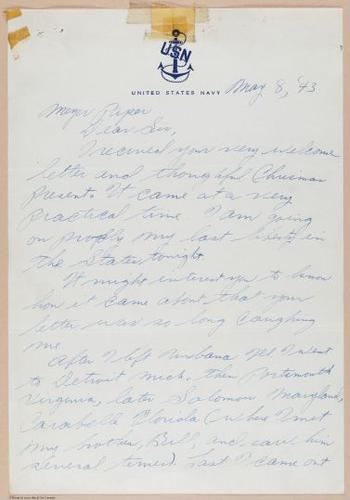 USN
UNITED STATES NAVY
May 8, '43
Meyer Piper
Dear Sir,
I recieved your very welcome
letter and thoughful Chrismas
Present. It came at a very
Practical time I am going
on probly my last liberty in
the States tonight.
It might interest you to know
how it came about that your
letter was so long caughing
me.
After I left Urbana Ill I went
to Detroit Mich. then Portsmouth
Virginia, later Solomon Maryland,
Carabella Florida (where I met
my brother, Bill, and saw him
several times). Last I came out